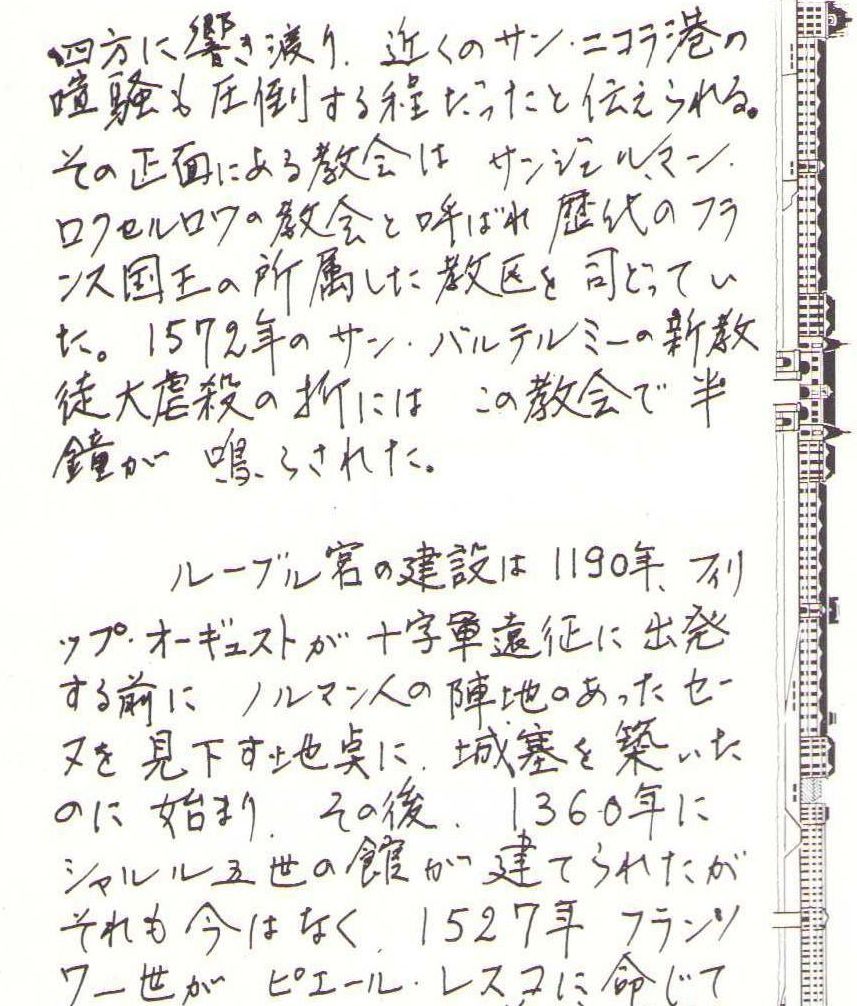 四方に響き渡り、近くのサン・ニコラ港の
喧騒も圧倒する程だったと伝えられる。
その正面にある教会は サンジェルマン・
ロクセルロワの教会と呼ばれ 歴代のフラ
ンス国王の所属した教区を司どってい
た。1572年のサン・バルテルミーの新教
徒大虐殺の折には この教会で半
鐘が 鳴らされた。
ルーブル宮の建設は1190年、フィリ
ップ・オーギュストが十字軍遠征に出発
する前に ノルマン人の陣地のあったセー
ヌを見下す地点に、城塞を築いた
のに始まり、その後、1360年に
シャルル五世の館が建てられたが
それも今はなく、1527年 フランソ
ワ一世が ピエール・レスコに命じて